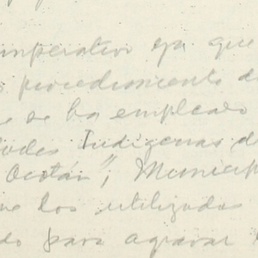 imperativo ya que
procedimiento de
se ha empleado
Indigenas de
Ocotán", Municip
los utilizados
do para agravar